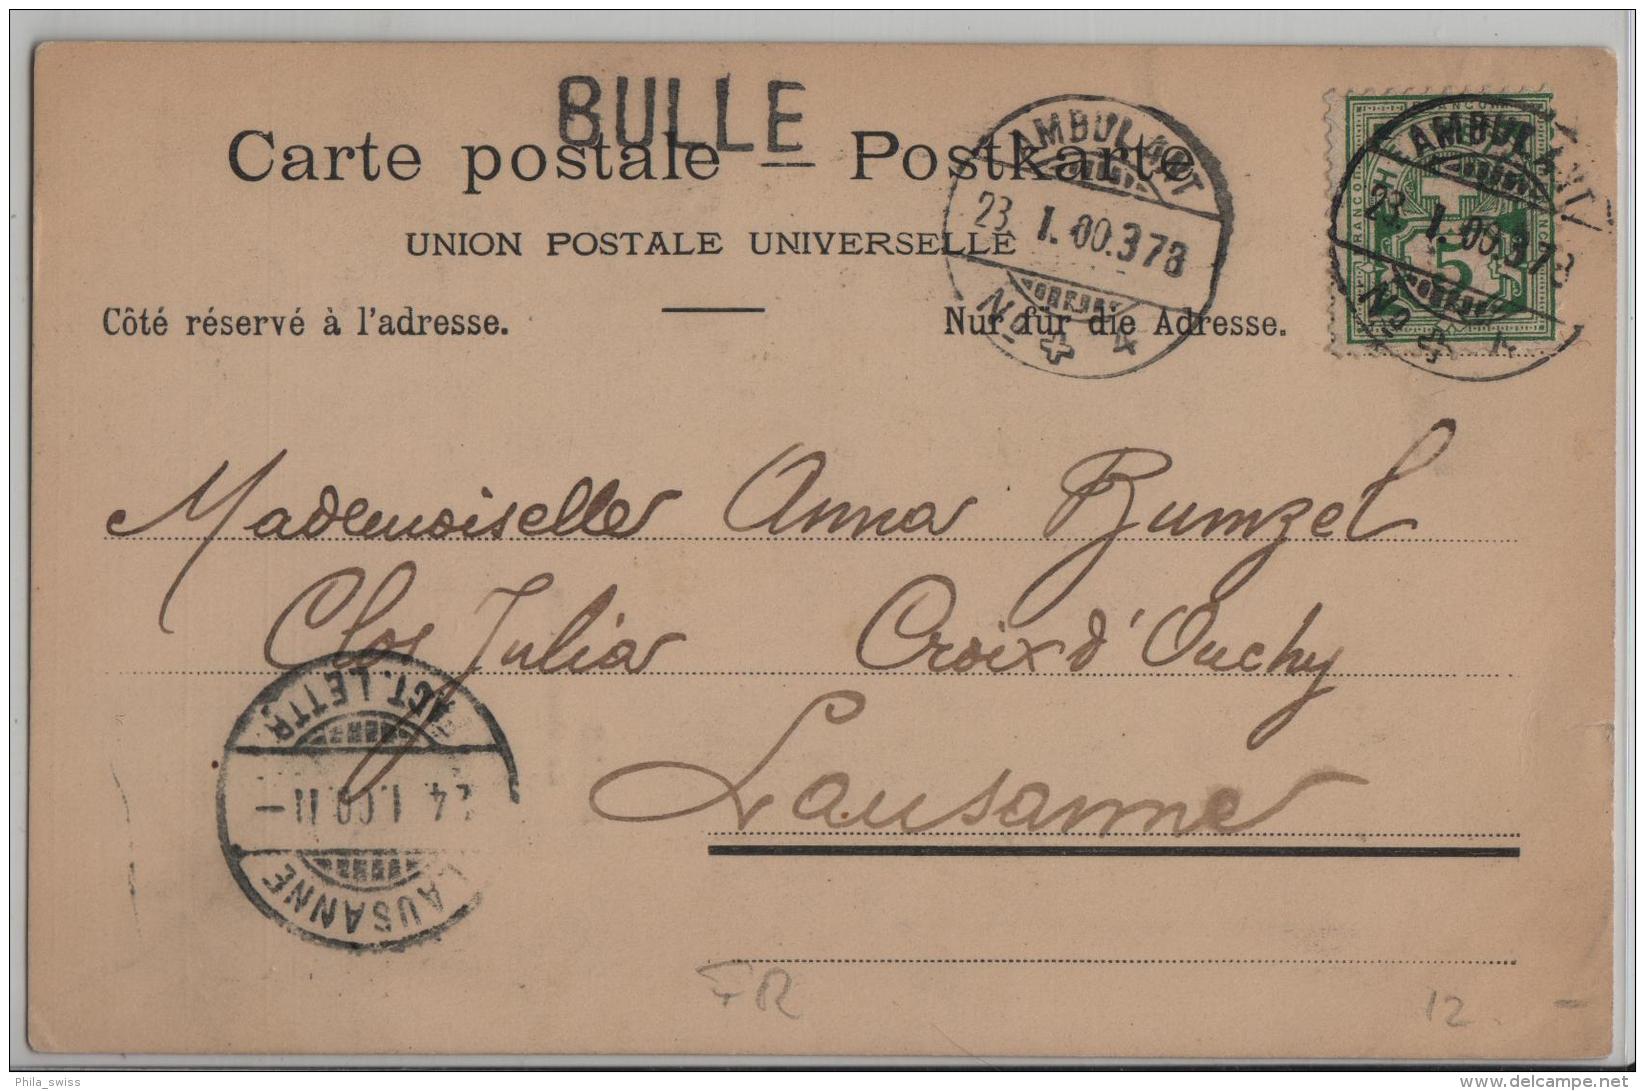 BULLE
Carte postale — Postkarte
UNION POSTALE UNIVERSELLE
Côté réservé à l'adresse. Nur für die Adresse.
AMBULANT
23. I. 00. 373
No 4
FRANCO
HE
AMBULANT
23. I. 00. 373
5
No
Mademoiselle Anna Bumzel
Clos Julia Croix d'Ouchy
Lausanne
LAUSANNE
24. I. 00. 11 –
ACT. LETTR.
FR
12. –
Phila_swiss
delcampe.net